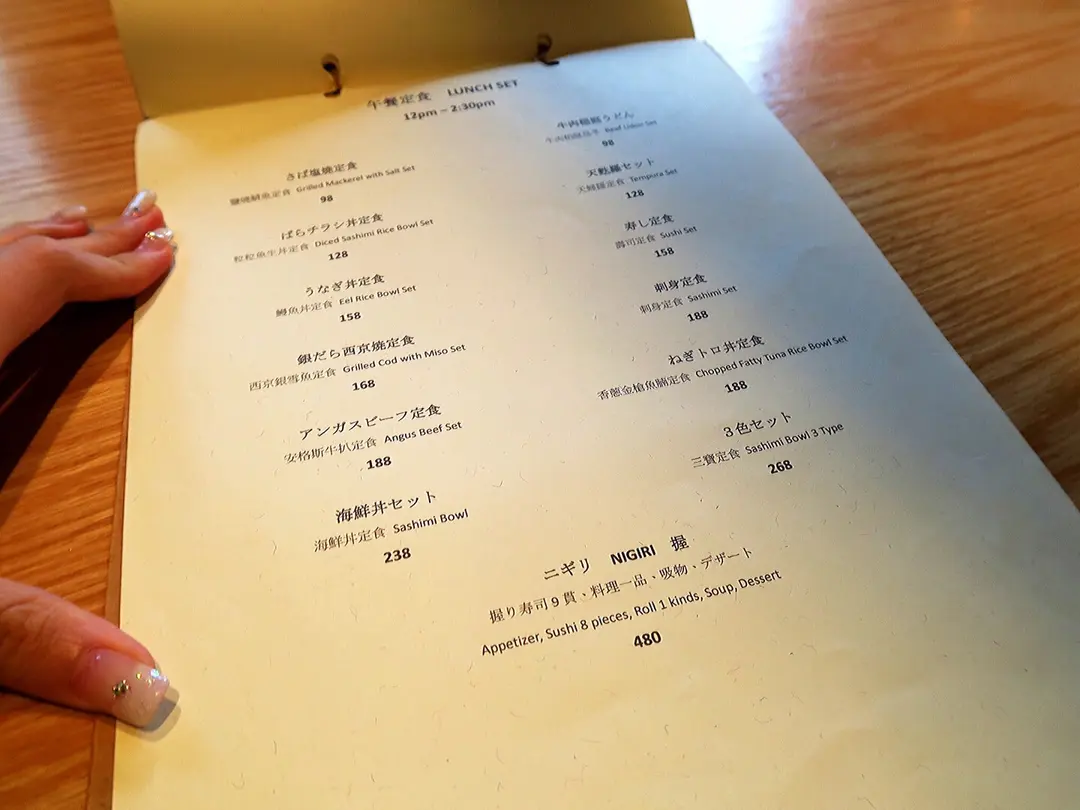 午餐定食 LUNCH SET
12pm – 2:30pm
さば塩焼定食
鹽燒鯖魚定食 Grilled Mackerel with Salt Set
98
ばらチラシ丼定食
粒粒魚生丼定食 Diced Sashimi Rice Bowl Set
128
うなぎ丼定食
鰻魚丼定食 Eel Rice Bowl Set
158
銀だら西京焼定食
西京銀雪魚定食 Grilled Cod with Miso Set
168
アンガスビーフ定食
安格斯牛扒定食 Angus Beef Set
188
海鮮丼セット
海鮮丼定食 Sashimi Bowl
238
牛肉稲庭うどん
牛肉稻庭烏冬 Beef Udon Set
98
天麩羅セット
天婦羅定食 Tempura Set
128
寿し定食
壽司定食 Sushi Set
158
刺身定食
刺身定食 Sashimi Set
188
ねぎトロ丼定食
香蔥金槍魚腩定食 Chopped Fatty Tuna Rice Bowl Set
188
３色セット
三寶定食 Sashimi Bowl 3 Type
268
ニギリ NIGIRI 握
握り寿司９貫、料理一品、吸物、デザート
Appetizer, Sushi 8 pieces, Roll 1 kinds, Soup, Dessert
480